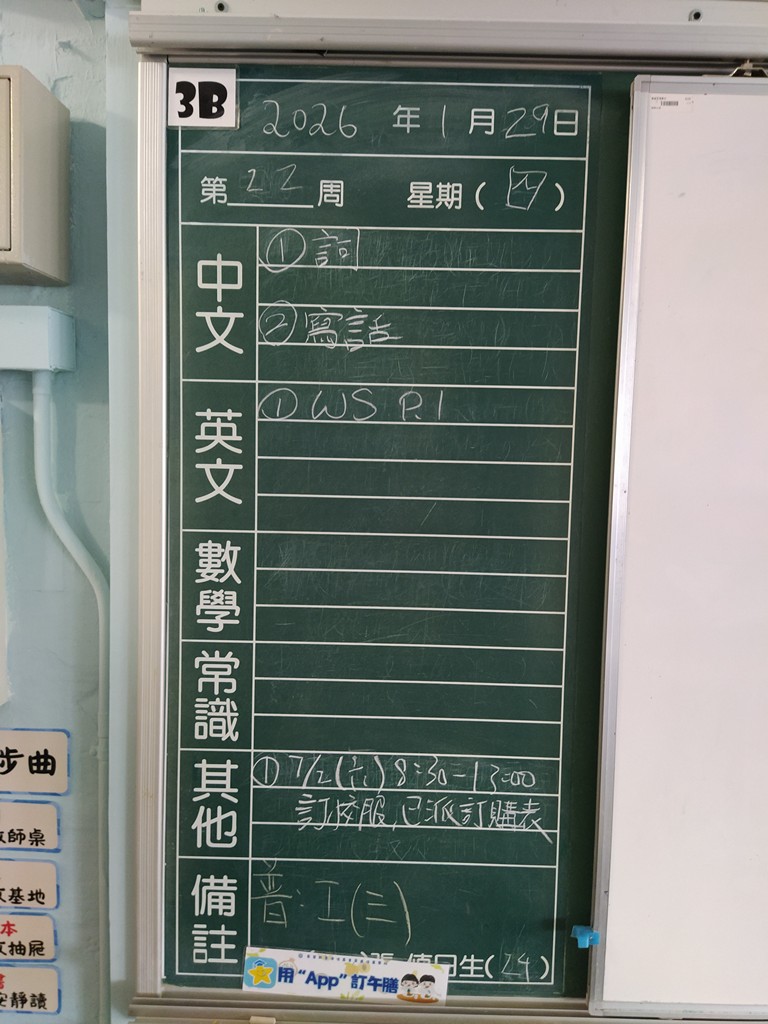 3B
2026 年 1 月 29 日
第 22 周 星期 ( 四 )
中文
① 詞
② 寫話
英文
① WS P.1
數學
常識
其他
① 7/2 (六) 8:30-13:00
訂校服,已派訂購表
備註
普: 工(三)
值日生( 24 )
用“App”訂午膳
步曲
師桌
基地
本
抽屜
安靜讀